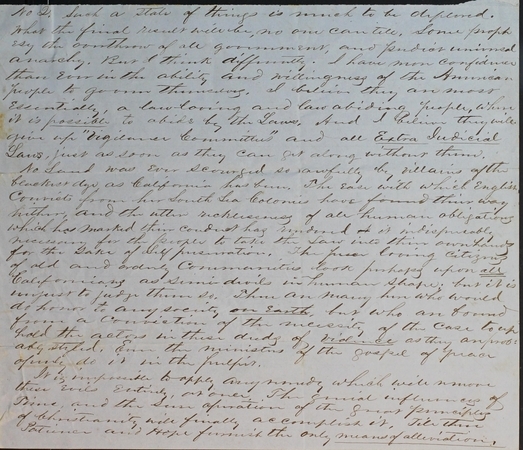 No 4. Such a state of things is much to be deplored.
What the final result will be, no one can tell. Some proph
esy the overthrow of all government, and predict universal
anarchy. But I think differently. I have more confidence
than ever in the ability and willingness of the American
people to govern themselves. I believe they are most
essentially, a law loving and law abiding people, when
it is possible to abide by the Laws. And I believe they will
give up "Vigilance Committees" and all Extra Judicial
Laws just as soon as they can get along without them.
No Land was ever scourged so awfully by villains of the
blackest dye, as California has been. The ease with which English
Convicts from her South Sea Colonies have found their way
hither, and the utter recklessness of all human obligations
which has marked their conduct has rendered it indispensably
necessary for the people to take the Law into their own hands
for the Sake of Self preservation. The peace loving citizens
of old and orderly Communities look perhaps upon all
Californians as Semi devils in human shape; but it is
unjust to judge them so. There are many here who would
do honor to any society on Earth, but who are found
from a conviction of the necessity of the case to up
hold the actors in these deeds of violence as they are prob
ably styled. Even the ministers of the gospel of peace
openly do it in the pulpit.
It is impossible to apply any remedy which will remove
these Evils Entirely, at once. The genial influences of
Time, and the Sure operation of the great principles
of Christianity will finally accomplish it, Till then
Patience and Hope furnish the only means of alleviation.